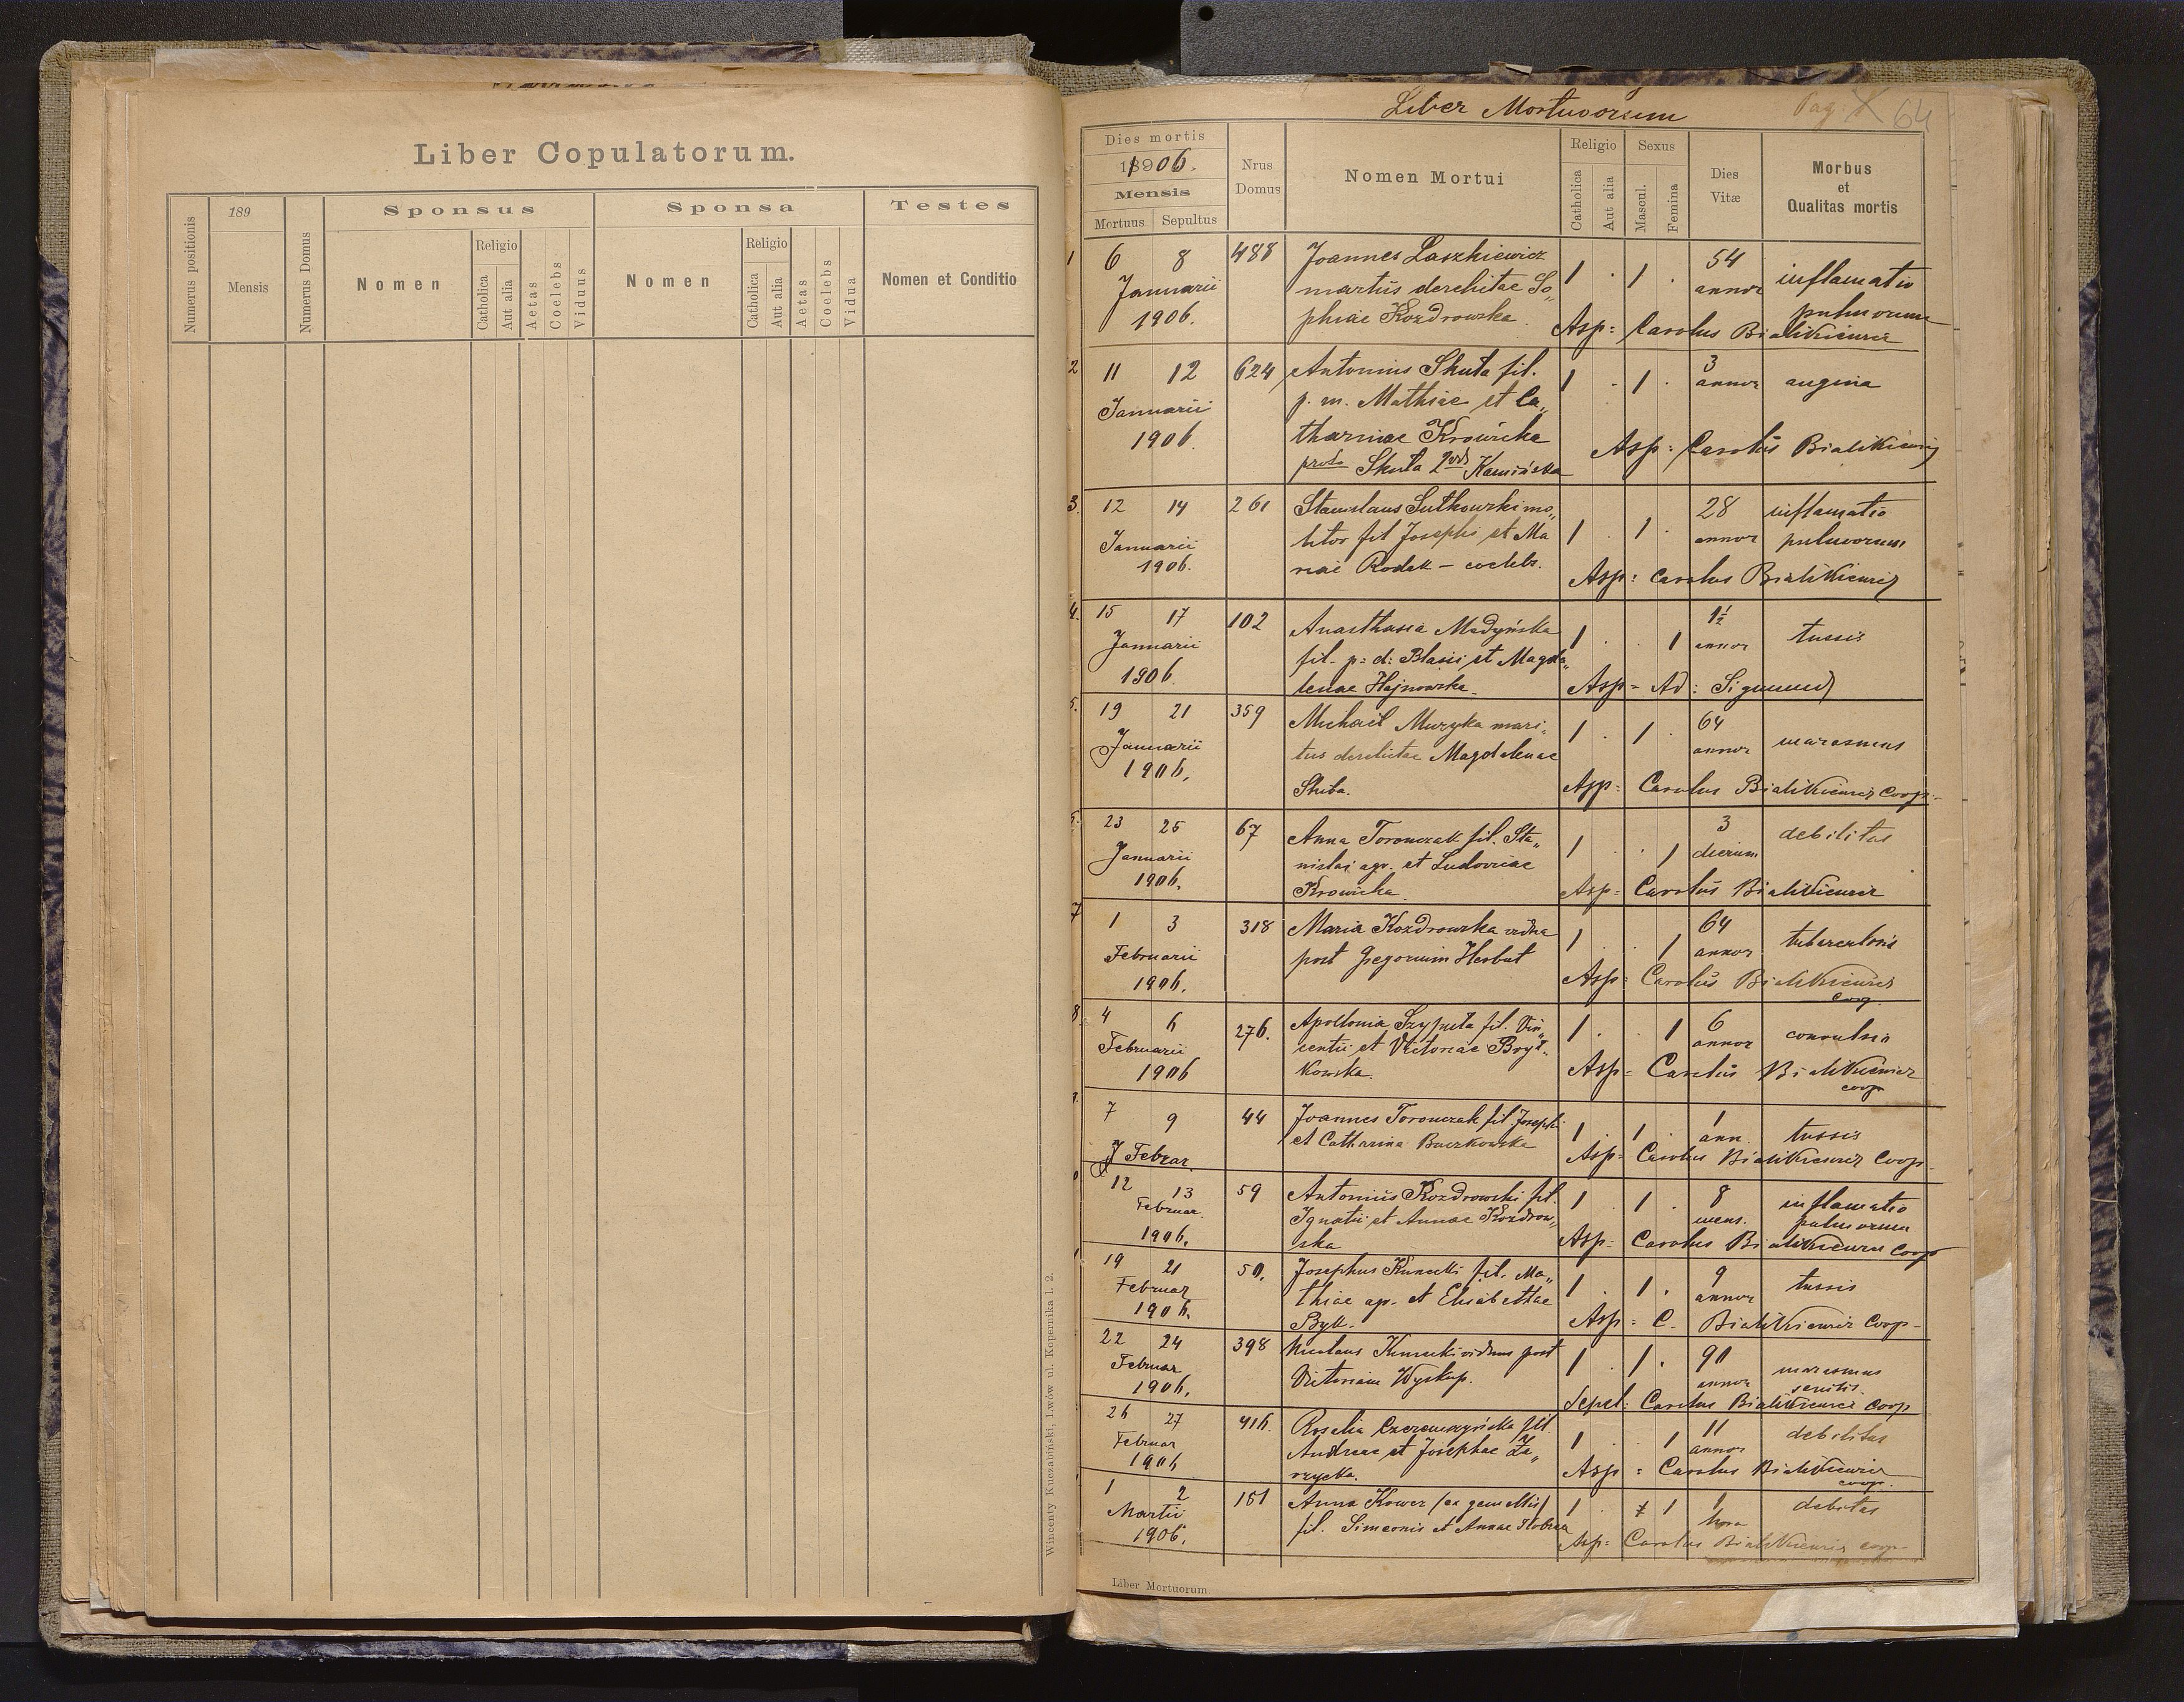 Liber Copulatorum.
Numerus positionis
189
Mensis
Numerus Domus
Sponsus
Nomen
Religio
Catholica
Aut alia
Aetas
Coelebs
Viduus
Sponsa
Nomen
Religio
Catholica
Aut alia
Aetas
Coelebs
Vidua
Testes
Nomen et Conditio
Wincenty Kuczabiński, Lwów ul. Kopernika l. 2.
Liber Mortuorum
Pag. 64
Dies mortis
1906.
Mensis
Mortuus Sepultus
Nrus
Domus
Nomen Mortui
Religio
Catholica
Aut alia
Sexus
Mascul.
Femina
Dies
Vitæ
Morbus
et
Qualitas mortis
1 6 8 488 Joannes Laszkiewicz 1 . 1 . 54
Januarii maritus derelictae So„ annor inflamatio
1906. phiae Kozdrowska pulmorum
Asp: Carolus Bialikiewicz
2 11 12 624 Antonius Skuta fil. 1 . 1 . 3 annor angina
Januarii p. m. Mathiae et Ca„
1906. tharinae Krowicka Asp: Carolus Bialikiewicz
Skuta Kamińska
3. 12 14 261 Stanislaus Sutkowski mo„ 28 inflamatio
Januarii litor fil Josephi et Ma 1 . 1 . annor pulmorum
1906. riae Rodak – coelebs. Asp: Carolus Bialikiewicz
4. 15 17 102 Anasthasia Madyńska 1 . . 1 1½
Januarii fil. p: d: Blasii et Magda„ annor tussis
1906. lenae Hajnowska Asp: Ad: Sigmund
5. 19 21 359 Michaël Muzyka mari„ 1 . 1 . 64
Januarii tus derelictae Magdalenae annor marasmus
1906. Skiba. Asp: Carolus Bialikiewicz Coop.
23 25 67 Anna Toronczak fil. Sta„ 1 . . 1 3 debilitas
Januarii nislai agr. et Ludovicae dierum
1906. Krowicka Asp: Carolus Bialikiewicz
7 1 3 318 Maria Kozdrowska vidua 1 . . 1 64
Februarii post Gregorium Herbut annor tuberculosis
1906. Asp: Carolus Bialikiewicz
coop.
8. 4 6 276. Apollonia Szypuła fil. Vin„ 1 . . 1 6
Februarii centii et Victoriae Bryt„ annor convulsio
1906 kowska. Asp: Carolus Bialikiewicz
coop
7 9 44 Joannes Toronczak fil Josephi 1 . 1 . 1
et Catharina Buczkowska ann. tussis
Februar. Asp: Carolus Bialikiewicz Coop.
12 13 59 Antonius Kozdrowski fil. 1 . 1 . 8 inflamatio
Februar. Ignatii et Annae Kozdrow„ mens. pulmorum
1906. ska Asp: Carolus Bialikiewicz Coop
19 21 50. Josephus Kunecki fil. Ma„ 1 . 1 . 9
Februar thiae ag. et Elisabethae annor tussis
1906. Byk. Asp: C. Bialikiewicz Coop.
22 24 398 Nicolaus Kunecki viduus post 1 . 1 . 90
Februar Victoriam Wyskup. annor marasmus
1906. senilis.
Sepel: Carolus Bialikiewicz Coop
26 27 416. Rosalia fil. 1 . . 1 11
Februar Andreae et Josephae Za„ annor debilitas
1906 rzycka. Asp: Carolus Bialikiewicz
coop.
1 2 161 Anna Kower (ex gemellis) 1 . 1 1 debitas
Martii fil. Simeonis et Annae hora
1906. Asp: Carolus Bialikiewicz coop.
Liber Mortuorum